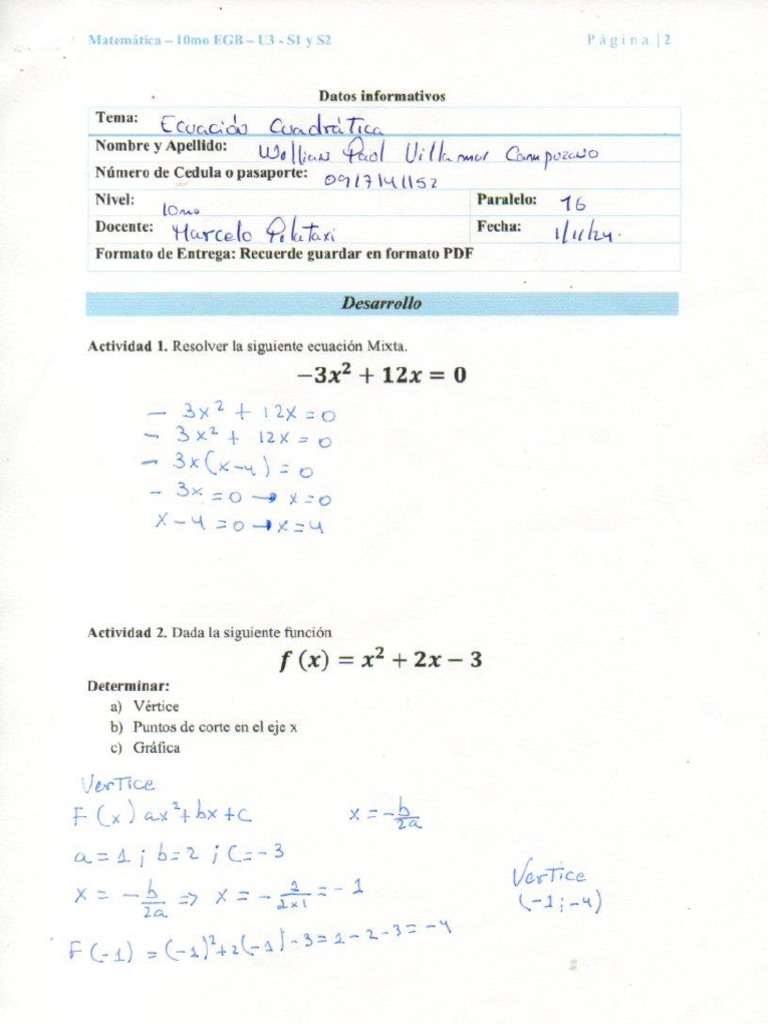 Matemática – 10mo EGB – U3 - S1 y S2 Página | 2
Datos informativos
Tema: Ecuación Cuadrática
Nombre y Apellido: Wellian Paol Villamar Campuzano
Número de Cedula o pasaporte: 0917141152
Nivel: 10mo Paralelo: 16
Docente: Marcelo Pilataxi Fecha: 1/11/24.
Formato de Entrega: Recuerde guardar en formato PDF
Desarrollo
Actividad 1. Resolver la siguiente ecuación Mixta.
−3x² + 12x = 0
− 3x² + 12x = 0
− 3x² + 12x = 0
− 3x(x−4) = 0
− 3x = 0 → x = 0
x − 4 = 0 → x = 4
Actividad 2. Dada la siguiente función
f (x) = x² + 2x − 3
Determinar:
a) Vértice
b) Puntos de corte en el eje x
c) Gráfica
Vertice
F(x) ax²+bx+c x = -b/2a
a = 1 ; b = 2 ; C = -3
x = -b/2a ⇒ x = -2/2x1 = -1
Vertice
(-1 ; -4)
F(-1) = (-1)²+2(-1)-3 = 1-2-3 = -4